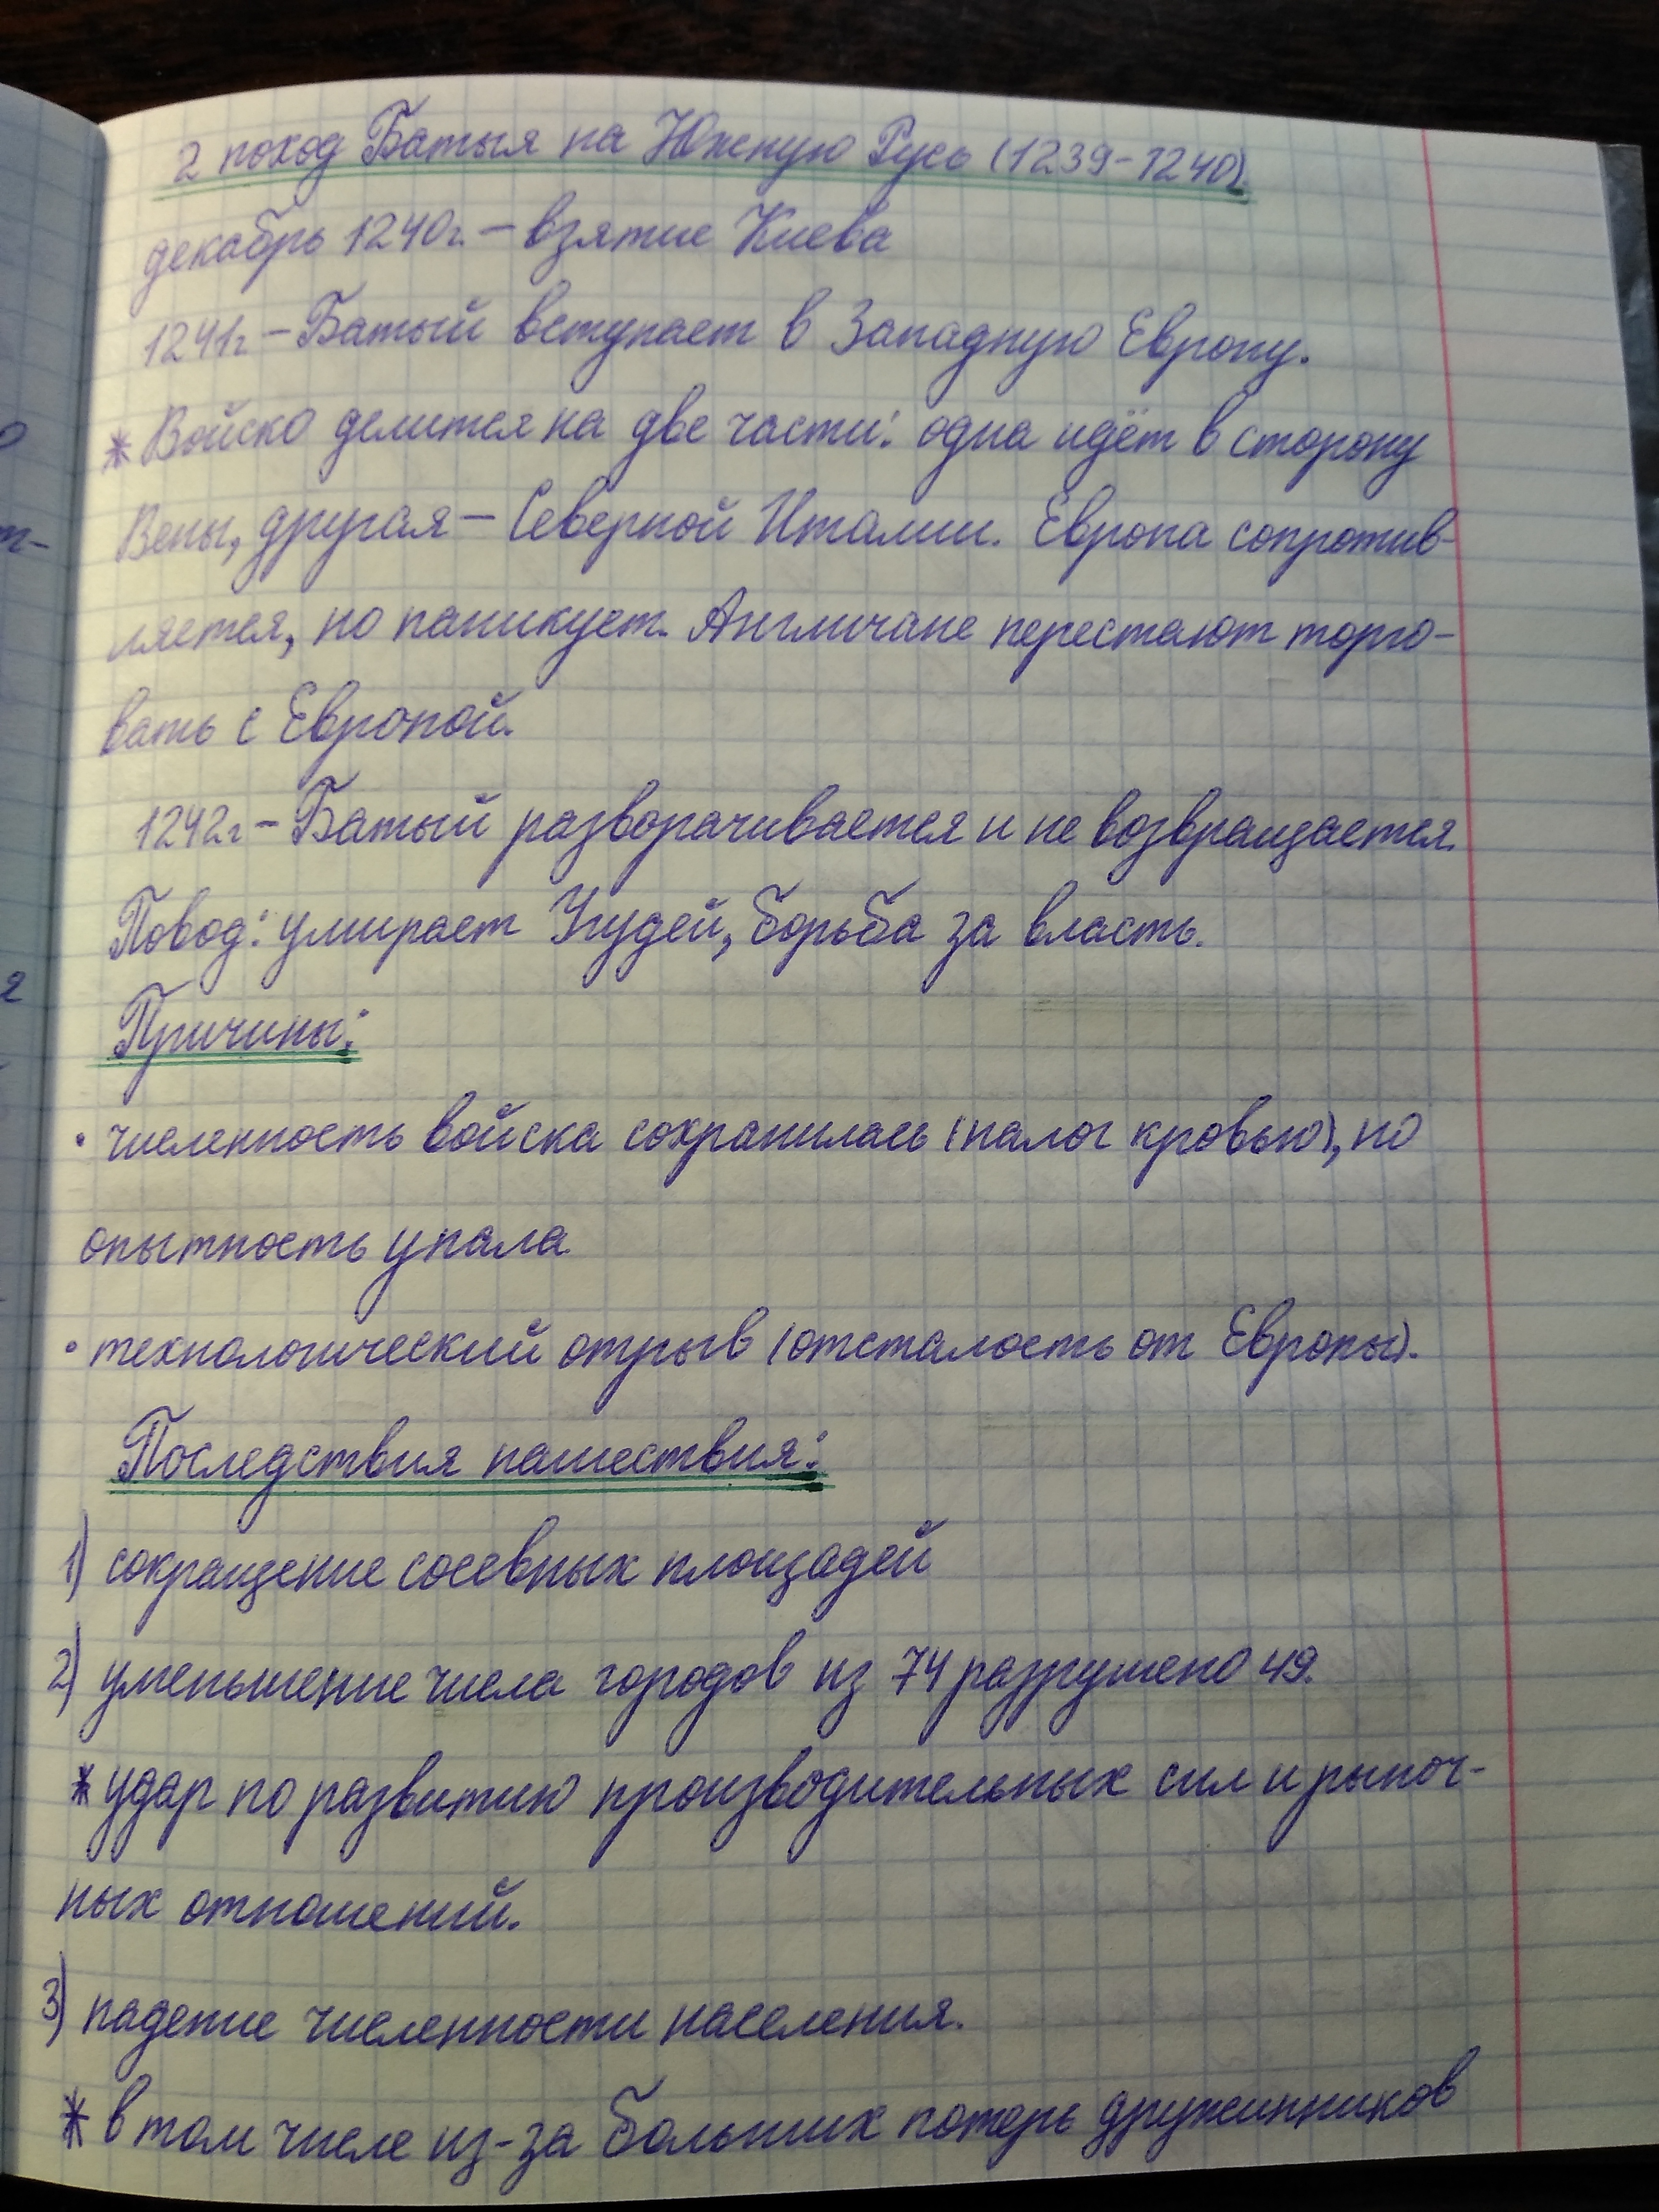 2 поход Батыя на Южную Русь (1239-1240)
декабрь 1240г. – взятие Киева
1241г – Батый вступает в Западную Европу.
* Войско делится на две части: одна идёт в сторону
Вены, другая – Северной Италии. Европа сопротив-
ляется, но паникует. Англичане перестают торго-
вать с Европой.
1242г – Батый разворачивается и не возвращается.
Повод: умирает Угудей, борьба за власть.
Причины:
• численность войска сохранилась (налог кровью), но
опытность упала
• технологический отрыв (отсталость от Европы).
Последствия нашествия:
1) сокращение сосевных площадей
2) уменьшение числа городов из 74 разрушено 49.
* удар по развитию производительных сил и рыноч-
ных отношений.
3) падение численности населения.
* в том числе из-за больших потерь дружинников